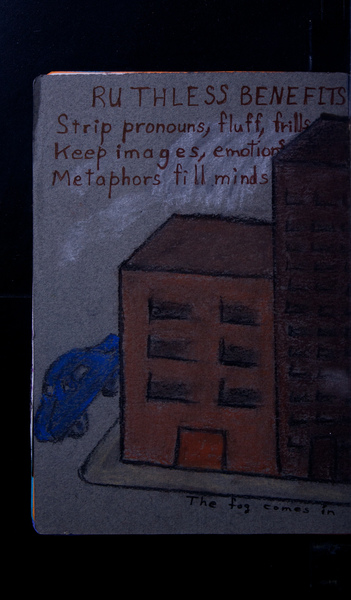 RUTHLESS BENEFITS
Strip pronouns, fluff, frills
Keep images, emotion
Metaphors fill minds
The fog comes in